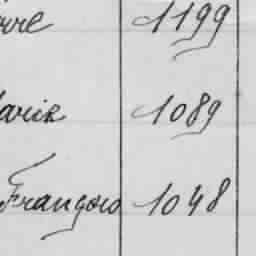 rre 1199
arie 1089
François 1048